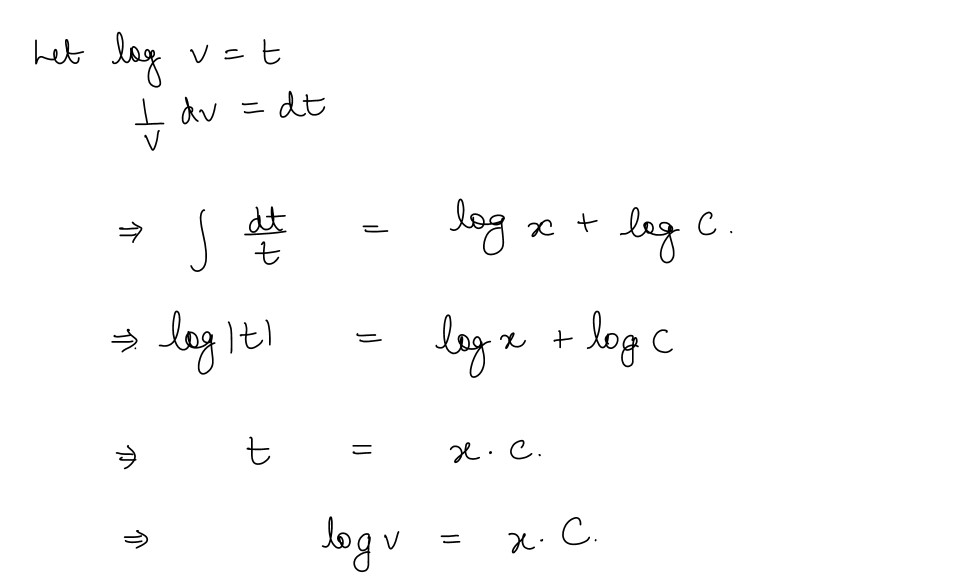 Let log v = t
1/v dv = dt
⇒ ∫ dt/t = log x + log C.
⇒ log |t| = log x + log C
⇒ t = x · C.
⇒ log v = x · C.